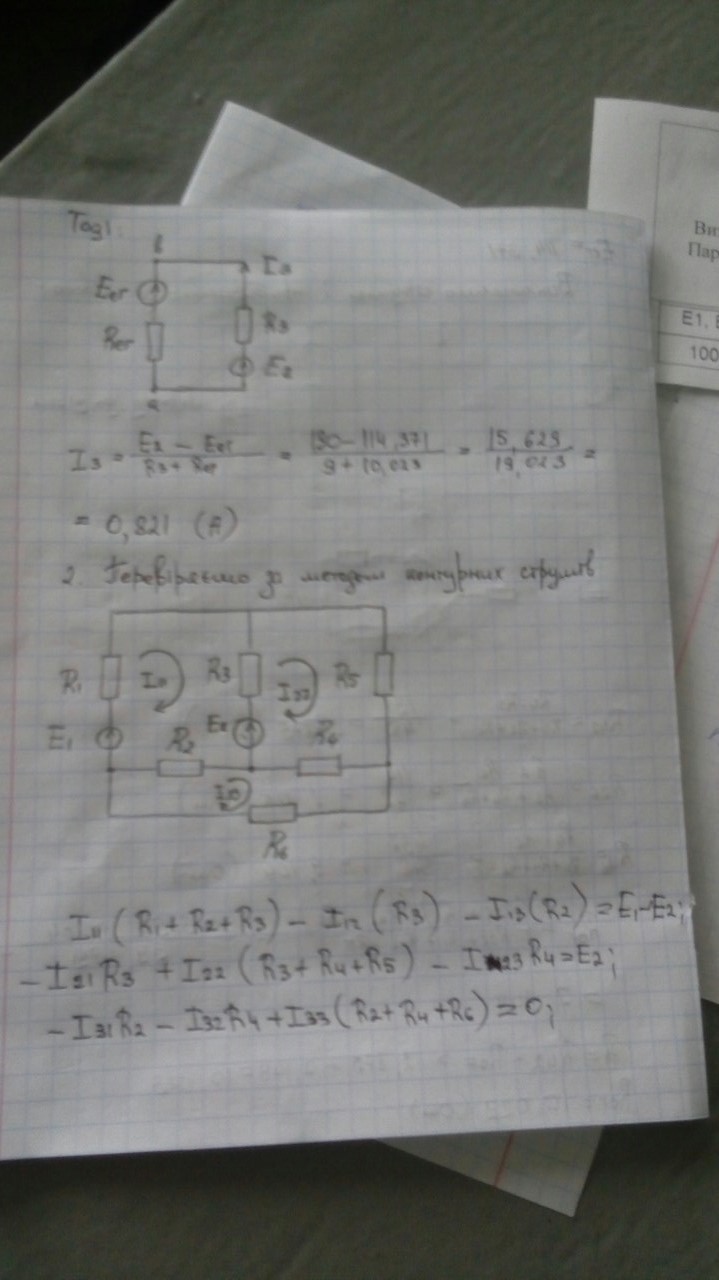 Тоді:
в
I3
Eег
R3
Rег
E2
a
I3 = E2 - Eег / R3 + Rег = 130 - 114,371 / 9 + 10,023 = 15,629 / 19,023 =
= 0,821 (А)
2. Перевіряємо за методом контурних струмів
R1
I11
R3
I22
R5
E1
R2
E2
R4
R6
I11 (R1 + R2 + R3) - I12 (R3) - I13 (R2) = E1 - E2;
- I21 R3 + I22 (R3 + R4 + R5) - I23 R4 = E2;
- I31 R2 - I32 R4 + I33 (R2 + R4 + R6) = 0;
Ви
Пар
E1, E
100